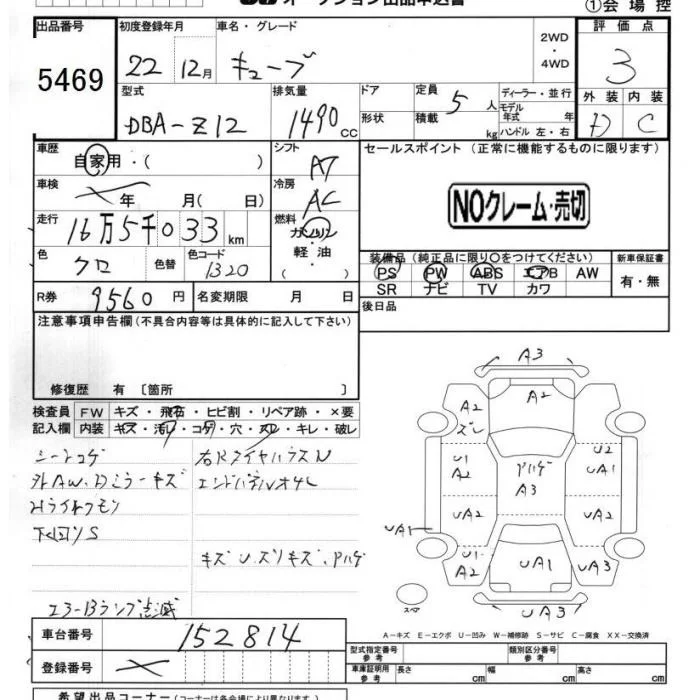 オークション出品申込書
①会場控
出品番号 5469
初度登録年月 22 12月
車名・グレード キューブ
2WD・4WD
評価点 3
外装 D 内装 C
型式 DBA-Z12
排気量 1490 CC
ドア
形状
定員 5 人
積載 kg
ディーラー・並行
モデル年式 年
ハンドル 左・右
車歴 自家用・( )
シフト AT
車検 年 月( 日)
冷房 AC
走行 16万5千033 km
燃料 ガソリン・軽油・( )
色 クロ 色替 色コード 1320
R券 9560 円 名変期限 月 日
セールスポイント (正常に機能するものに限ります)
NOクレーム・売切
装備品 (純正品に限り○をつけてください) 新車保証書
PS PW ABS エアB AW 有・無
SR ナビ TV カワ
後日品
注意事項申告欄(不具合内容等は具体的に記入して下さい)
修復歴 有 〔箇所 〕
検査員 FW キズ・飛石・ヒビ割・リペア跡・×要
記入欄 内装 キズ・汚レ・コゲ・穴・スレ・キレ・破レ
シートコゲ 右Rタイヤハウスハ
外AW、Dミラーキズ エンドパネルオサレ
Hライトクモリ
下回りS
キズU、ズリキズ、Pハゲ
エアーBランプ点滅
A3
A2 A2
ズレ
U1 A2 Pハゲ A3 U2 UA1
UA2 UA2
UA1
U1 A2 UA1 UA3
スペア UA3
A-キズ E-エクボ U-凹み W-補修跡 S-サビ C-腐食 XX-交換済
車台番号 152814
登録番号
型式指定番号 参考 類別区分番号 参考
車庫証明用 参考 長さ cm 幅 cm 高さ cm
希望出品コーナー (コーナーは各会場により異なります。)